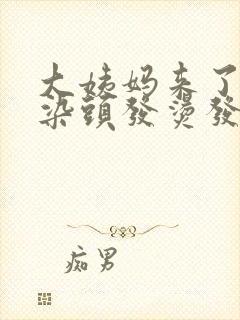 大姨妈来了
染頭發燙發
痴男